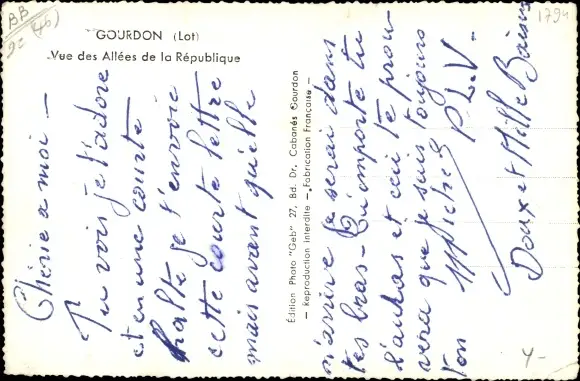 BB
92 (46)
1794
GOURDON (Lot)
Vue des Allées de la République
Chérie a moi –
Tu vois je t'adore
et en une courte
halte je t'envoie
cette courte lettre
mais avant qu'elle
n'arrive je serai dans
tes bras – Qu'importe tu
l'auras et ceci te prou-
vera que je suis toujours
ton P.L.V.
Doux et Mille Baisers
Édition Photo "Geb" 27, Bd. Dr. Cabanès Gourdon
– Reproduction interdite – Fabrication Française –
4-